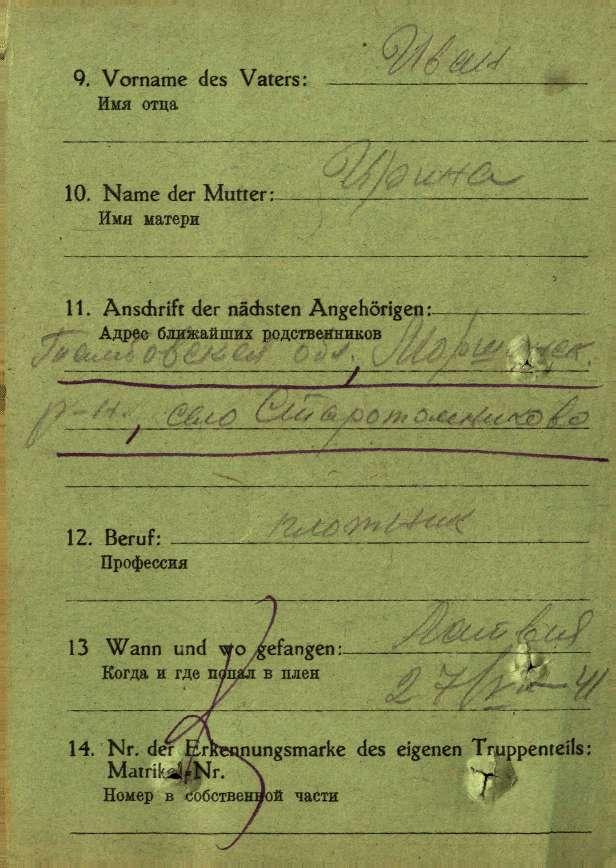 Иван
9. Vorname des Vaters:
Имя отца
Ирина
10. Name der Mutter:
Имя матери
11. Anschrift der nächsten Angehörigen:
Адрес ближайших родственников
Тамбовская обл., Моршанск.
р-н, село Старотомниково
плотник
12. Beruf:
Профессия
Латвия
13 Wann und wo gefangen:
Когда и где попал в плен
27/ 41
14. Nr. der Erkennungsmarke des eigenen Truppenteils:
Matrikel-Nr.
Номер в собственной части